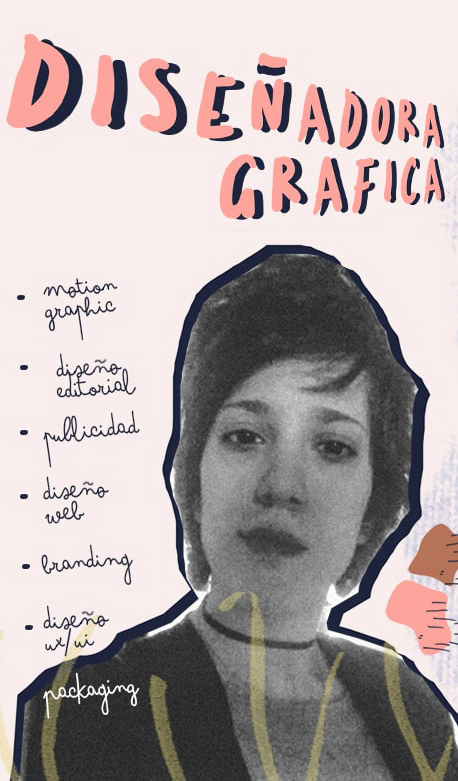 DISEÑADORA
GRAFICA
- motion
graphic
- diseño
editorial
- publicidad
- diseño
web
- branding
- diseño
ux/ui
packaging